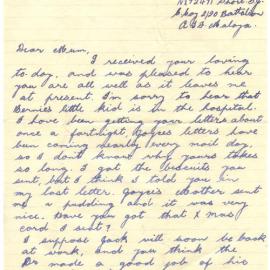 Coy 2/30 Battalion
A.I.F. Malaya.
Dear Mum,
I received your loving
to day, and was pleased to hear
you are all well as it leaves me
at present. I'm sorry to hear that
Bernies little kid is in the hospital.
I have been getting your letters about
once a fortnight, Joyces letters have
been coming nearly every mail day,
so I dont know why yours takes
so long. I got the biscuits you
sent, but I think I told you in
my last letter. Joyces Mother sent
me a pudding and it was very
nice. Have you got that Xmas
card I sent?
I suppose Jack will soon be back
at work, and you think the
Dr made a good job of his